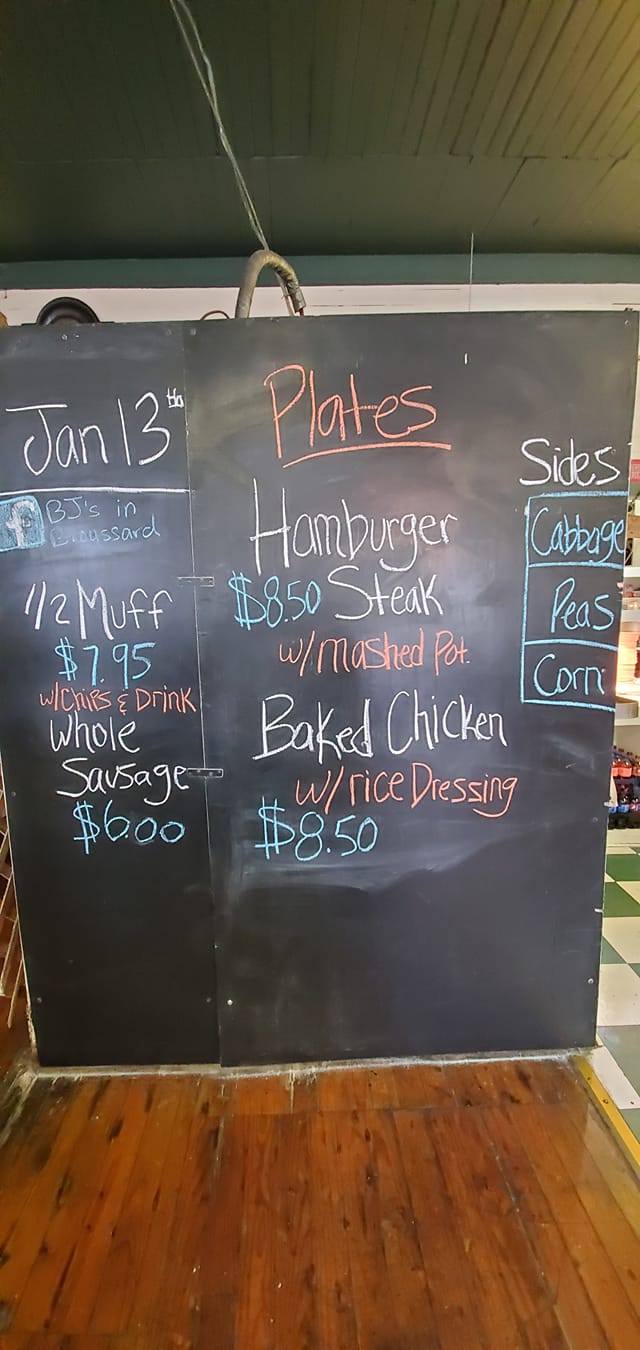 Jan 13th
BJ's in
Broussard
1/2 Muff
$7.95
w/Chips & Drink
Whole
Sausage
$6.00
Plates
Hamburger
$8.50 Steak
w/mashed Pot.
Baked Chicken
w/rice Dressing
$8.50
Sides
Cabbage
Peas
Corn